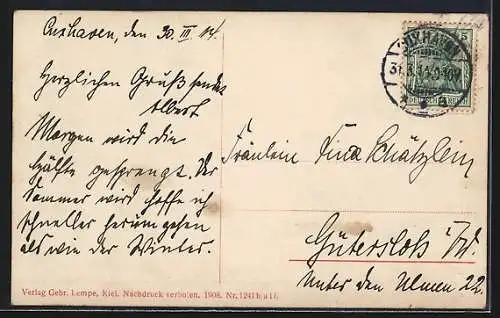 Cuxhaven, den 30. III. 14.
Herzlichen Gruß sendet
Albert
Morgen wird die
Hälfte gesprengt. Der
Sommer wird hoffe ich
schneller herumgehen
als wie der Winter.
CUXHAVEN
31.3.14
Fräulein Tina Schätzlein
Gütersloh i/W.
Unter den Ulmen 22.
Verlag Gebr. Lempe, Kiel. Nachdruck verboten. 1908. Nr.